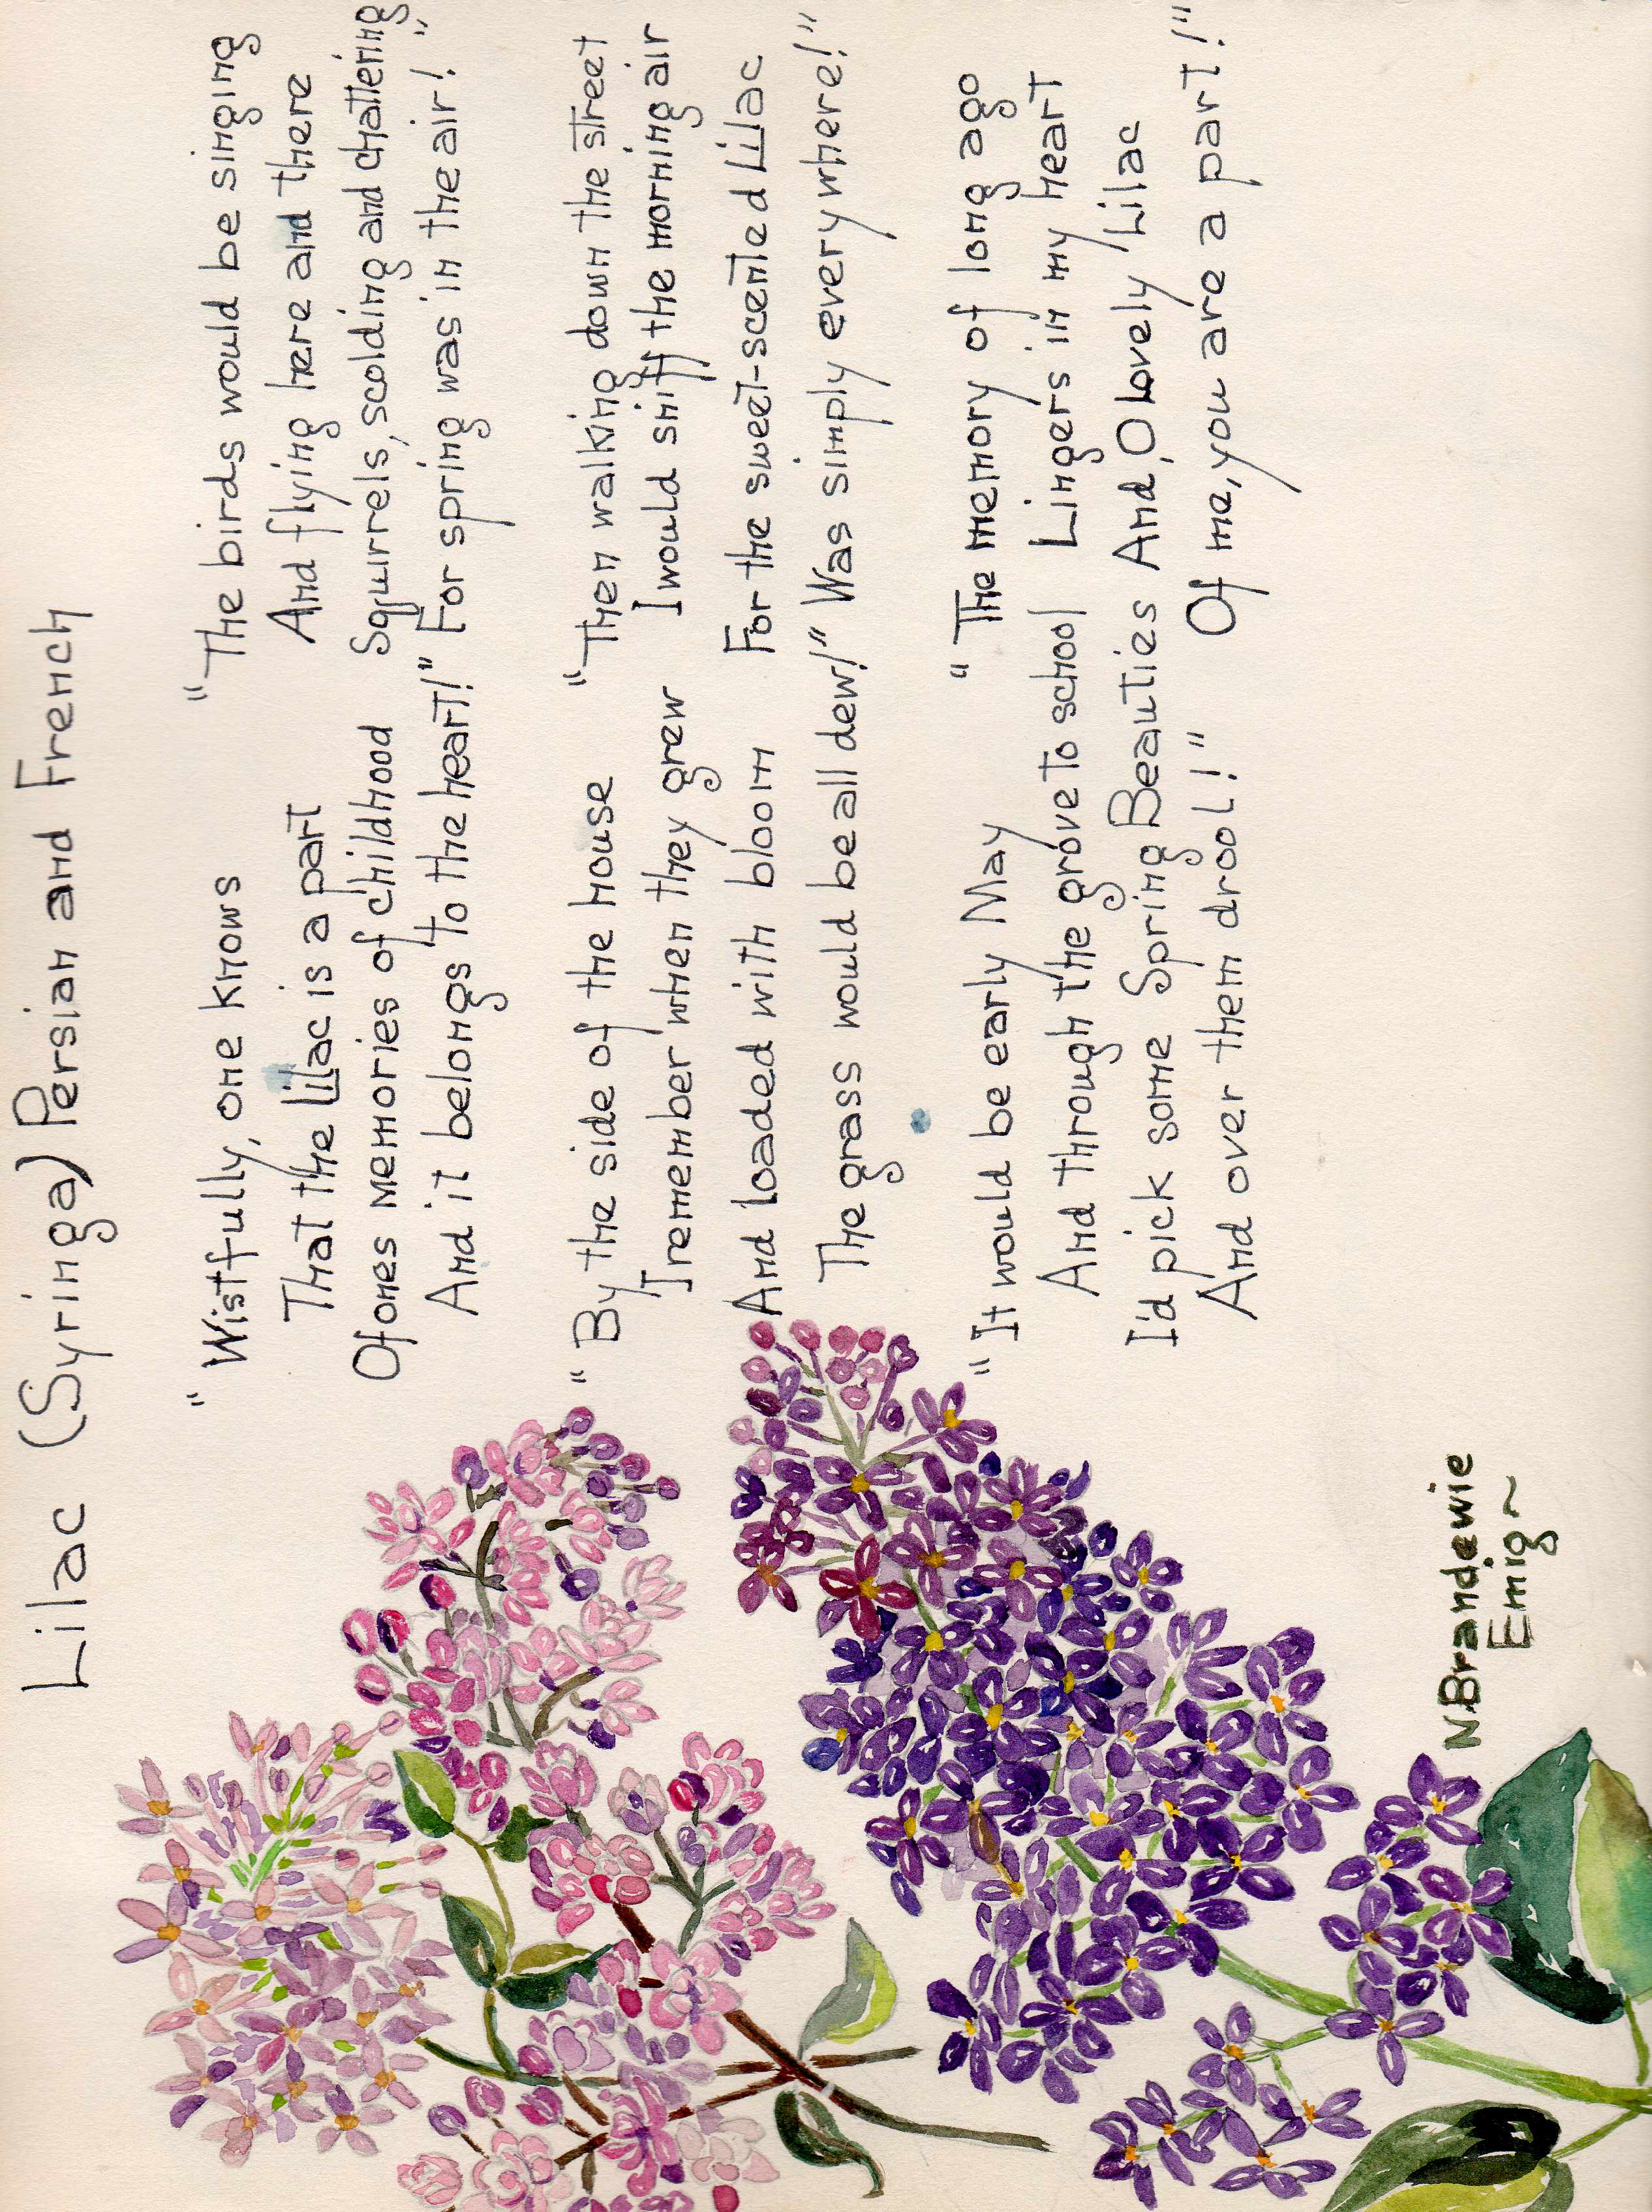 Lilac (Syringa) Persian and French
"Wistfully, one knows
That the lilac is a part
Of ones memories of childhood
And it belongs to the heart!"
"By the side of the house
I remember when they grew
And loaded with bloom
The grass would be all dew!"
"It would be early May
And through the grove to school
I'd pick some Spring Beauties
And over them drool!"
"The birds would be singing
And flying here and there
Squirrels, scolding and chattering
For spring was in the air!"
"Then walking down the street
I would sniff the morning air
For the sweet-scented Lilac
Was simply everywhere!"
"The memory of long ago
Lingers in my heart
And, O Lovely Lilac
Of me, you are a part!"
N. Brandewie
Emig~